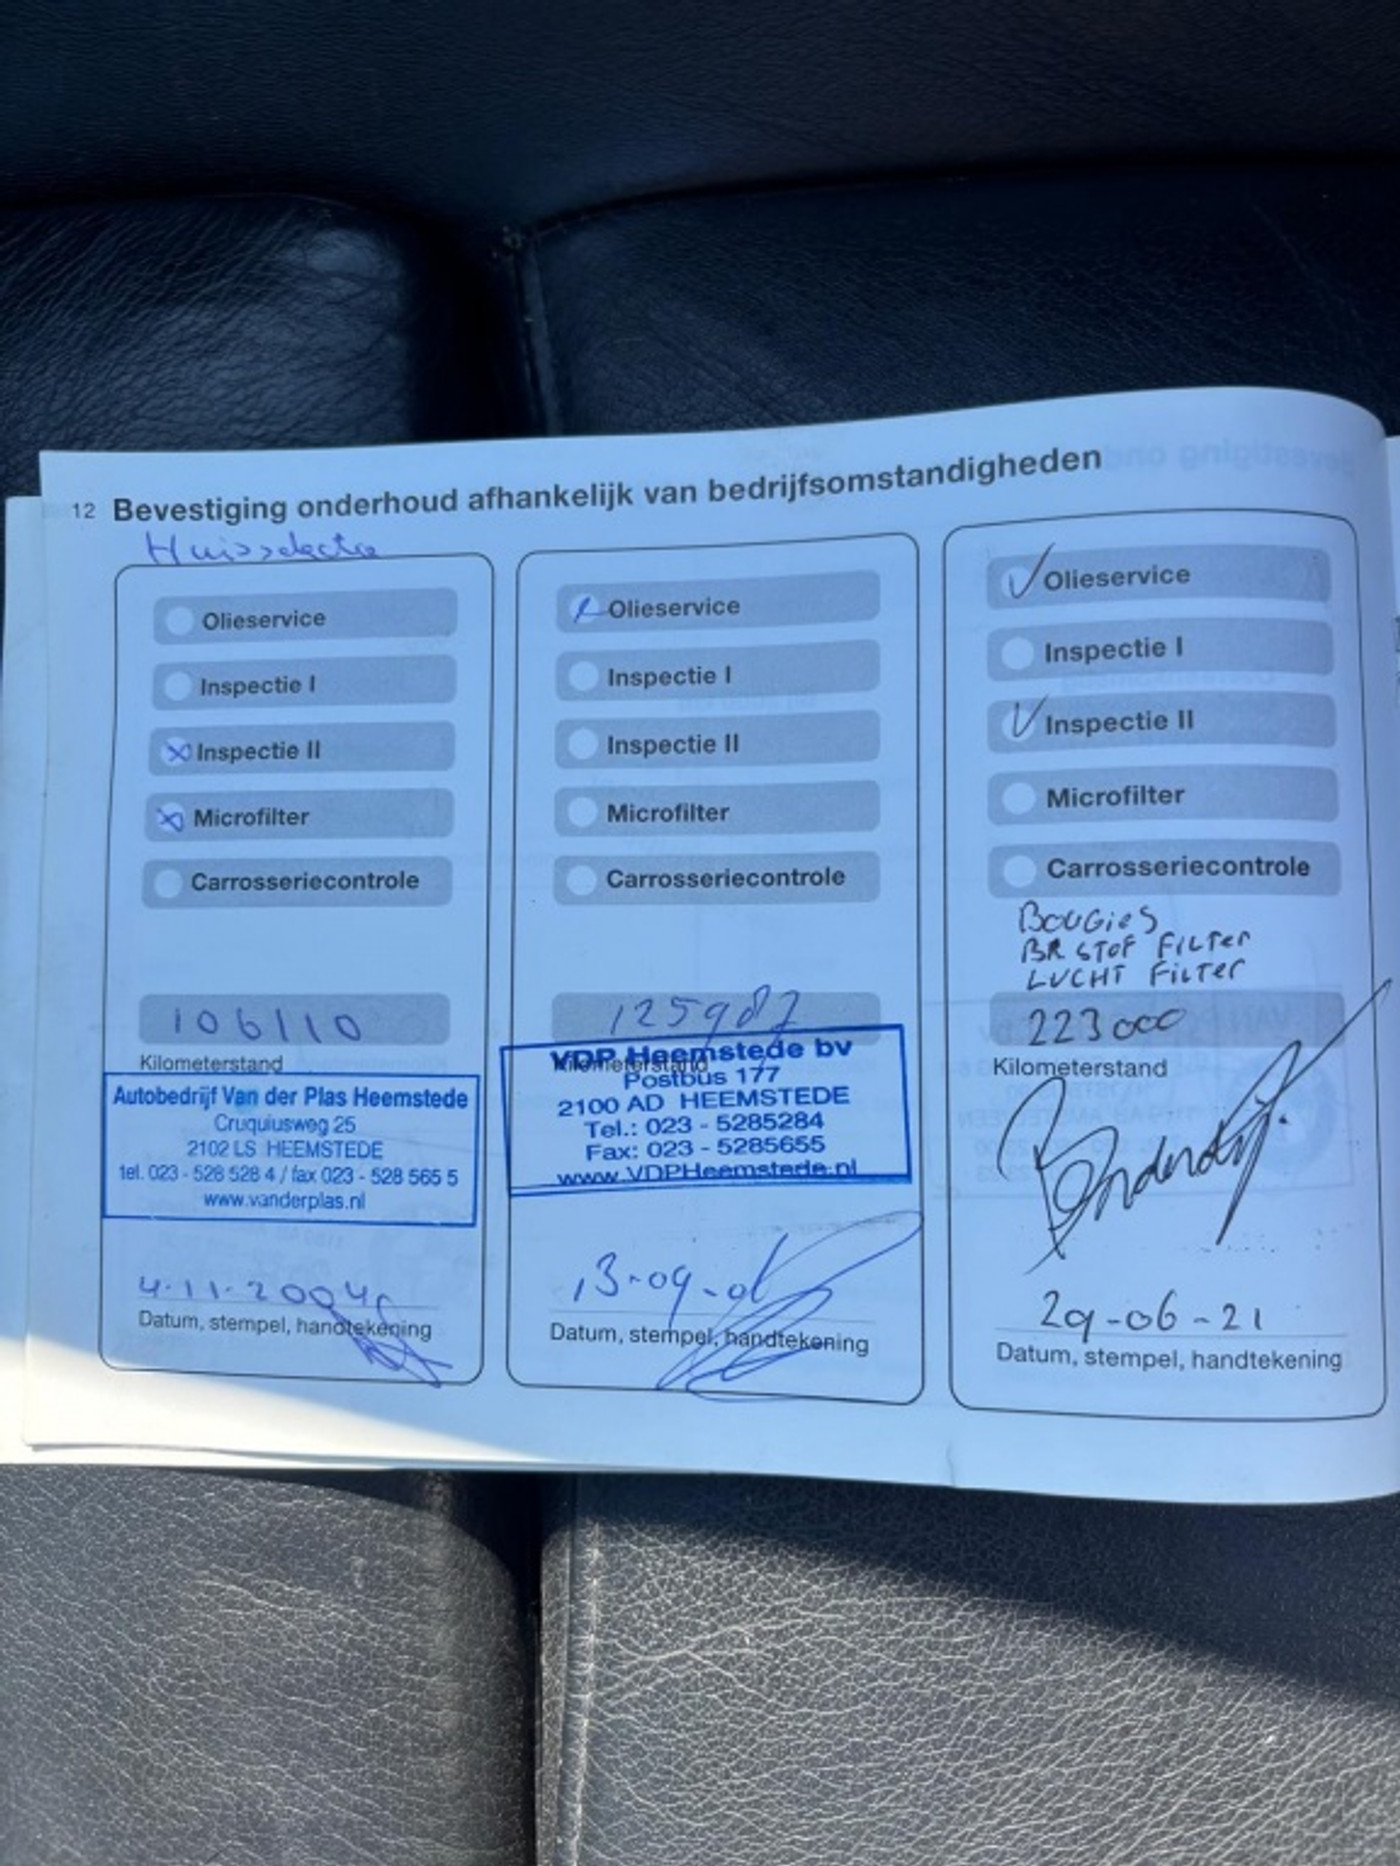 12 Bevestiging onderhoud afhankelijk van bedrijfsomstandigheden
Olieservice
Inspectie I
Inspectie II
Microfilter
Carrosseriecontrole
106110
Kilometerstand
Autobedrijf Van der Plas Heemstede
Cruquiusweg 25
2102 LS HEEMSTEDE
tel. 023 - 528 528 4 / fax 023 - 528 565 5
www.vanderplas.nl
4.11.2004
Datum, stempel, handtekening
Olieservice
Inspectie I
Inspectie II
Microfilter
Carrosseriecontrole
125987
Kilometerstand
VDP Heemstede bv
Postbus 177
2100 AD HEEMSTEDE
Tel.: 023 - 5285284
Fax: 023 - 5285655
www.VDPHeemstede.nl
13-09-06
Datum, stempel, handtekening
Olieservice
Inspectie I
Inspectie II
Microfilter
Carrosseriecontrole
BOUGIES
BR STOF FILTER
LUCHT FILTER
223000
Kilometerstand
29-06-21
Datum, stempel, handtekening